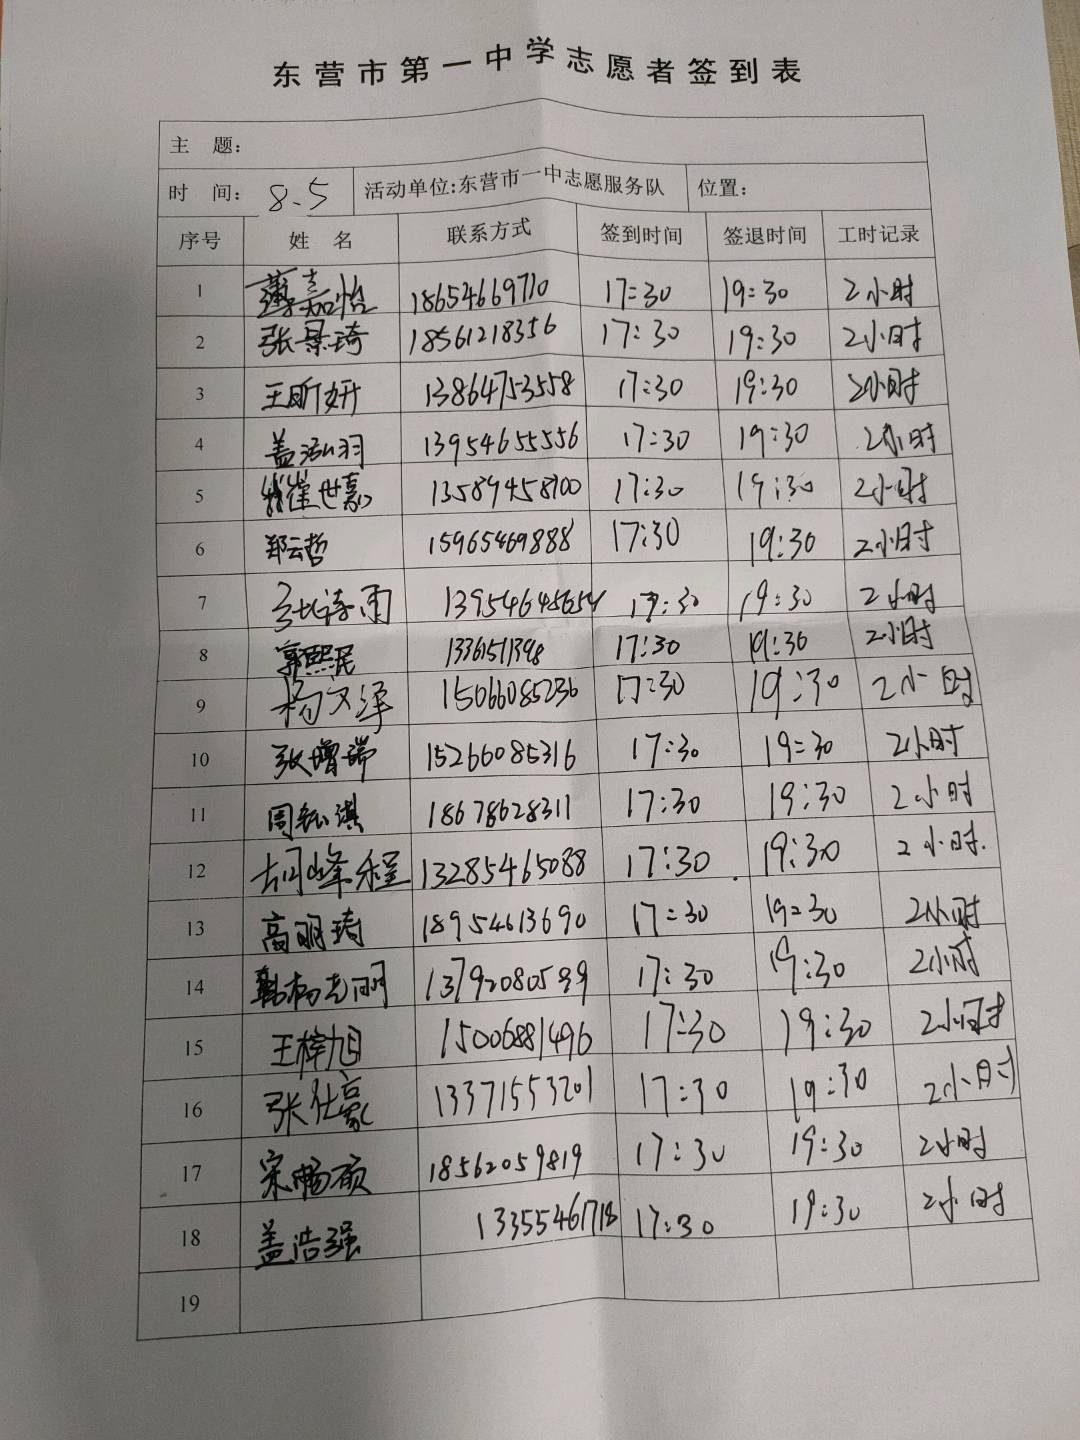 东营市第一中学志愿者签到表
主 题：
时 间： 8.5 活动单位:东营市一中志愿服务队 位置：
序号 姓 名 联系方式 签到时间 签退时间 工时记录
1 嘉怡 18654669710 17:30 19:30 2小时
2 张景琦 18561218356 17:30 19:30 2小时
3 王昕妍 13864753558 17:30 19:30 2小时
4 盖泓羽 13954655556 17:30 19:30 2小时
5 崔世嘉 13589458700 17:30 19:30 2小时
6 郑云哲 15965469888 17:30 19:30 2小时
7 诗雨 17:30 19:30 2小时
8 郭熙民 17:30 19:30 2小时
9 杨文泽 15066085236 17:30 19:30 2小时
10 张增瑞 15266085316 17:30 19:30 2小时
11 周钰淇 18678628311 17:30 19:30 2小时
12 胡峰程 13285465088 17:30 19:30 2小时.
13 高明琦 18954613690 17:30 19:30 2小时
14 韩杨志明 17:30 19:30 2小时
15 王梓旭 15006881496 17:30 19:30 2小时
16 张仕豪 13371553201 17:30 19:30 2小时
17 宋畅硕 18562059819 17:30 19:30 2小时
18 盖浩强 13355461718 17:30 19:30 2小时
19